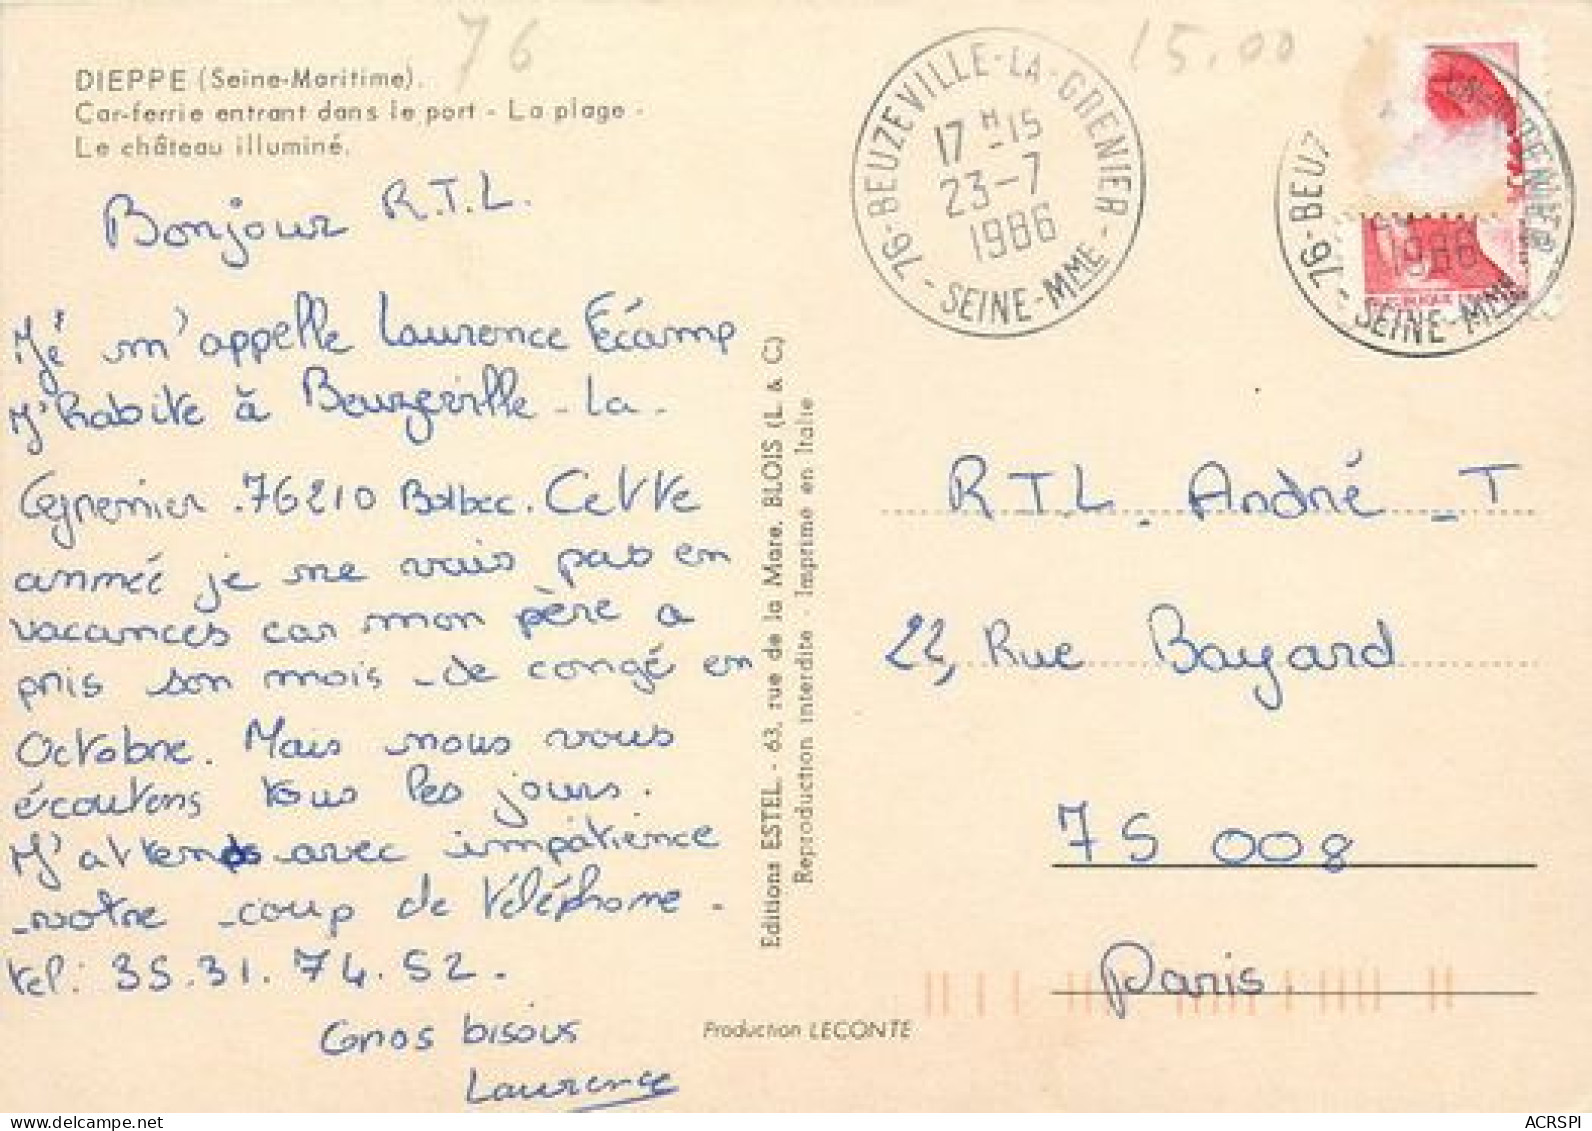 76
15.00
DIEPPE (Seine-Maritime).
Car-ferrie entrant dans le port - La plage -
Le château illuminé.
76-BEUZEVILLE-LA-GRENIER - SEINE-MME -
17 H-15
23-7
1986
76-BEUZ
ENIER
1986
- SEINE-MME
Bonjour R.T.L.
Je m'appelle Laurence Fécamp
J'habite à Beuzeville-la-
Grenier. 76210 Bolbec. Cette
année je ne vais pas en
vacances car mon père a
pris son mois de congé en
Octobre. Mais nous vous
écoutons tous les jours.
J'attends avec impatience
votre coup de téléphone.
tel: 35.31.74.52.
Gros bisous
Laurence
Editions ESTEL. - 63, rue de la Mare, BLOIS (L. & C)
Reproduction interdite - Imprimé en Italie
Production LECONTE
R.T.L. André-T
22, Rue Bayard
75 008
Paris.
ACRSPI